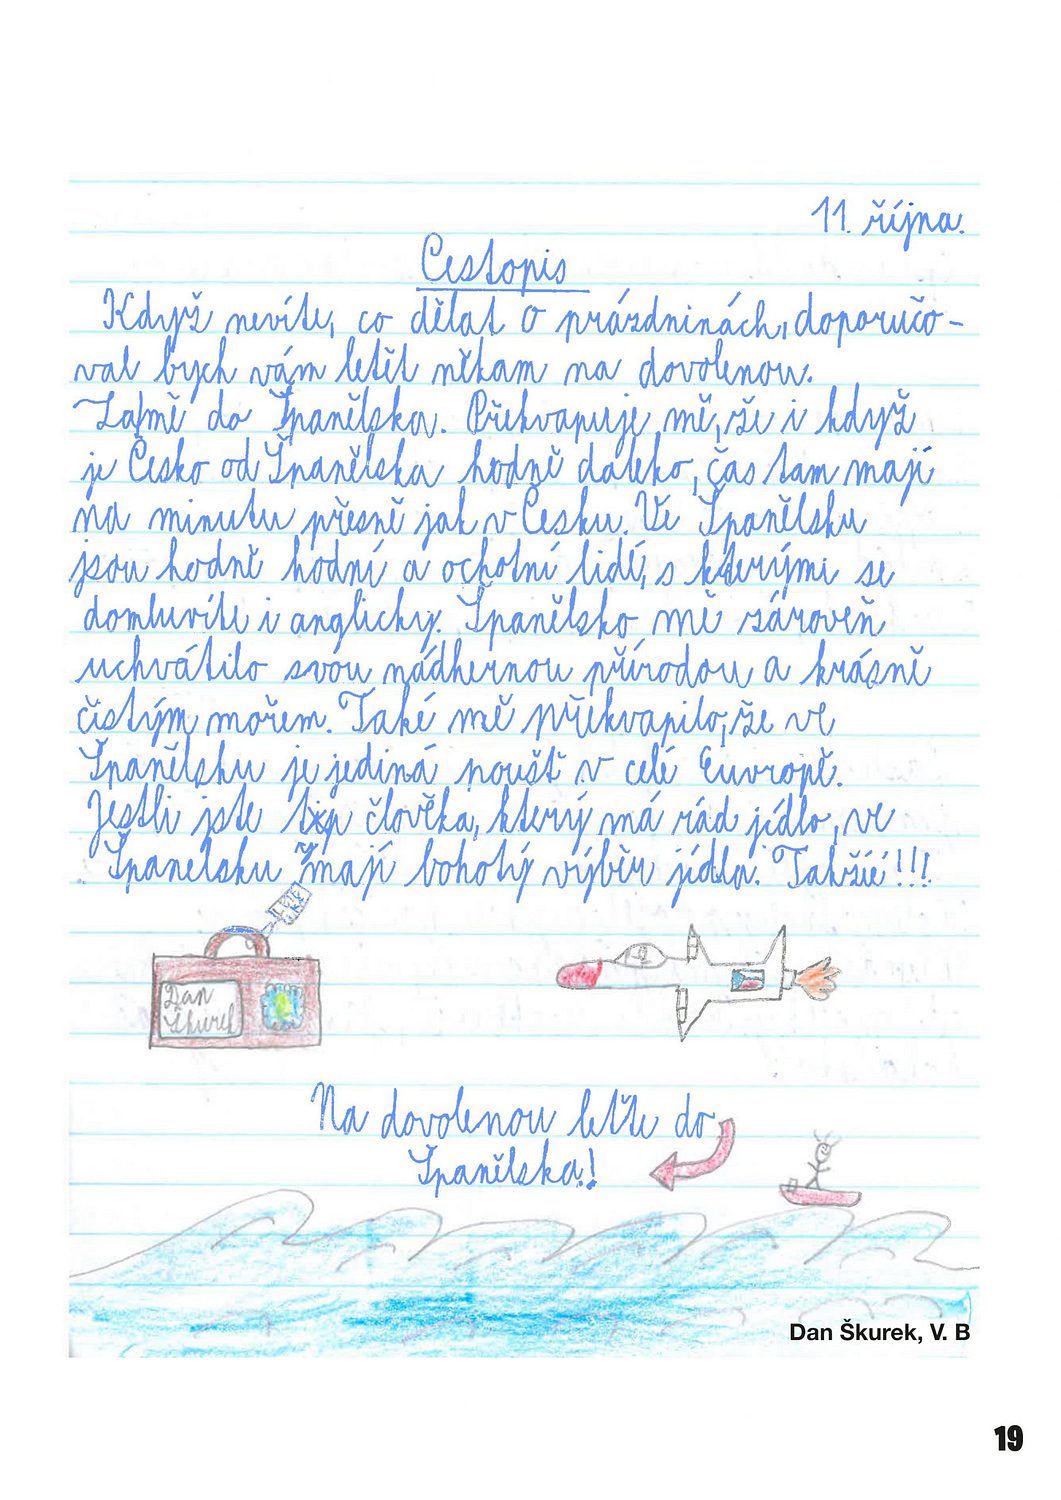 11. října.
Cestopis
Když nevíte, co dělat o prázdninách, doporučo-
val bych vám letět někam na dovolenou.
do Španělska. Překvapuje mě, že i když
je Česko od Španělska hodně daleko, čas tam mají
na minutu přesně jak v Česku. Ve Španělsku
jsou hodně hodní a ochotní lidé, s kterými se
domluvíte i anglicky. Španělsko mě zároveň
uchvátilo svou nádhernou přírodou a krásně
čistým mořem. Také mě překvapilo, že ve
Španělsku je jediná poušť v celé Euvropě.
Jestli jste typ člověka, který má rád jídlo, ve
Španelsku mají bohotý výběr jídla. Takžíé!!!
Dan
Škurek
Na dovolenou leťte do
Španělska!
Dan Škurek, V. B
19